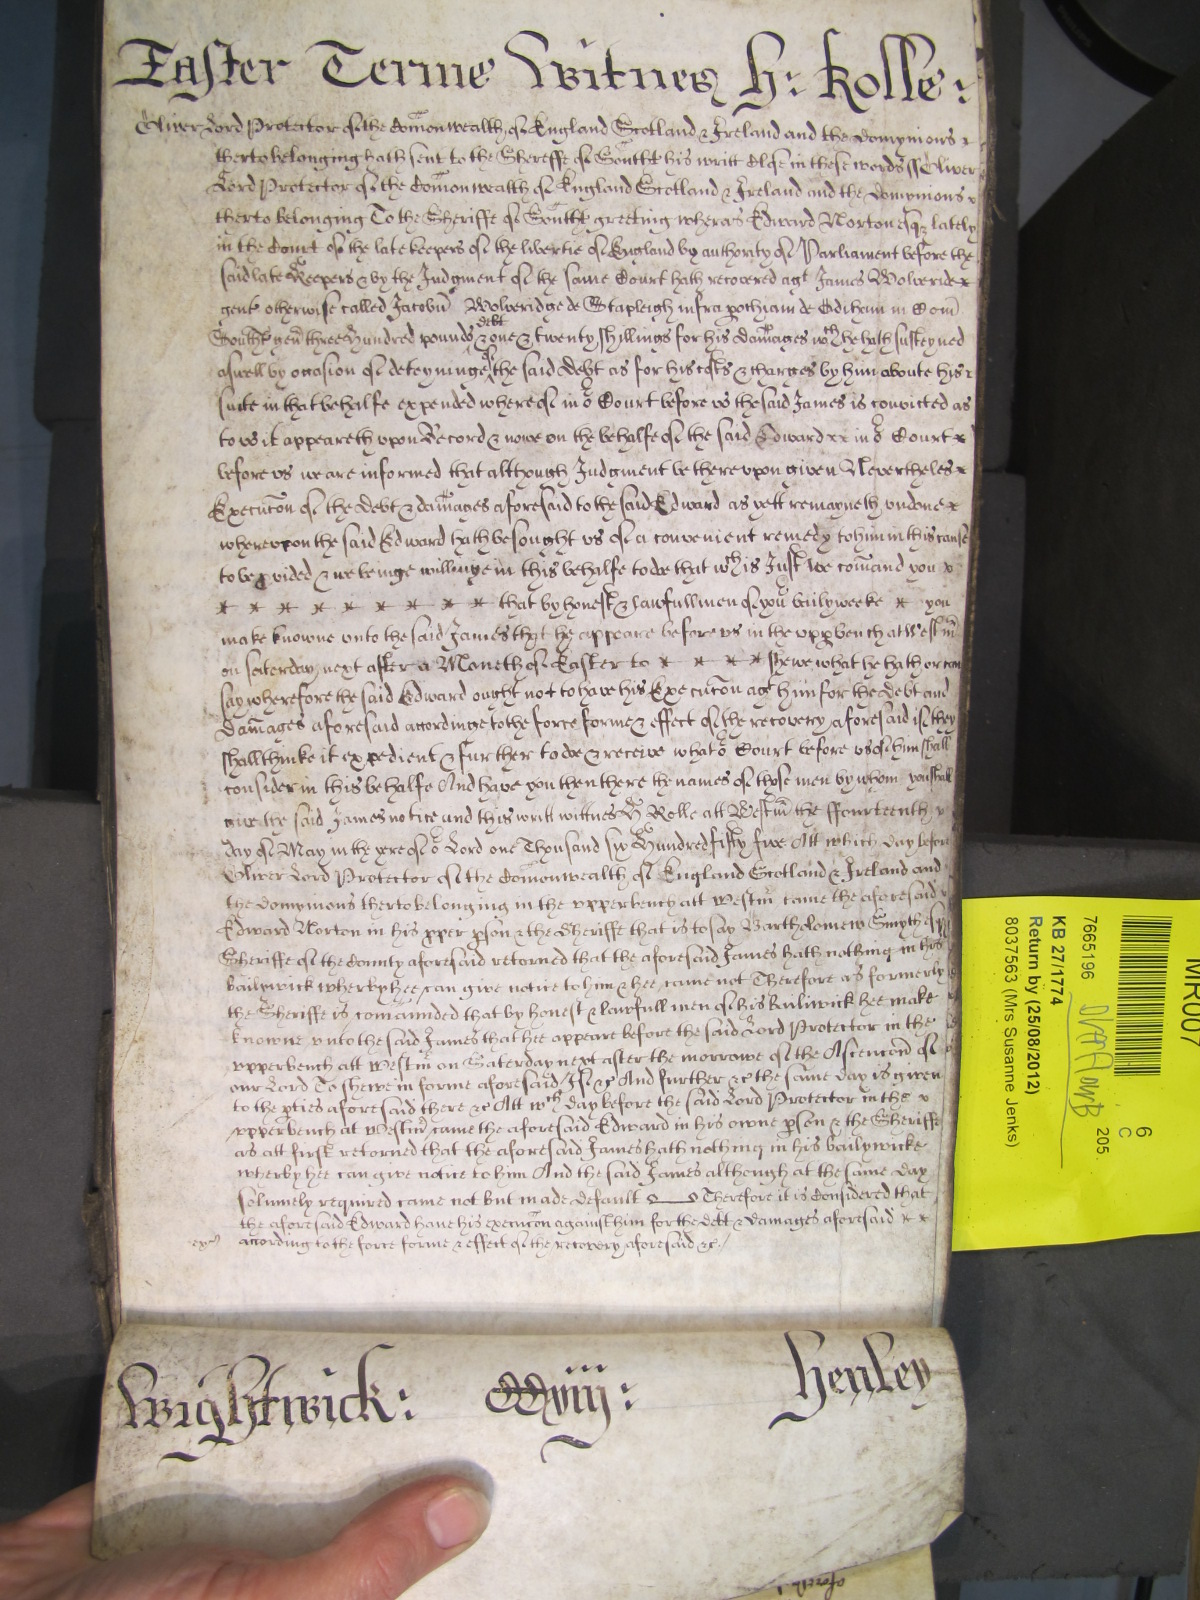 Easter Terme Witnes H: Rolle:
Oliver Lord Protector of the Comonwealth of England Scotland & Ireland and the Domynions
therto belonging hath sent to the Shereffe of Southt his writt Close in these words ss Oliver
Lord Protector of the Comonwealth of England Scotland & Ireland and the Domynions
therto belonging To the Sheriffe of Southt greeting wheras Edward Norton esq lately
in the Court of the late keepers of the libertie of England by authority of Parliament before the
said late Keepers & by the Judgment of the same Court hath recovered agt James Wolveridge
gent otherwise called Jacobum Wolveridge de Stapleigh infra pochiam de Odiham in Com
Southt gen three Hundred pounds debt & one & twenty shillings for his damages wch he hath susteyned
aswell by occasion of deteyninge of the said debt as for his costs & charges by him aboute his
suite in that behalfe expended where of in or Court before vs the said James is convicted as
to vs it appeareth vpon Record & nowe on the behalfe of the said Edward in or Court
before vs we are informed that although Judgment be therevpon given Nevertheles
Execucon of the debt & damages aforesaid to the said Edward as yett remayneth vndone
wherevpon the said Edward hath besought vs of a convenient remedy to him in this cause
to be pvided & we beinge willinge in this behalfe to doe that wch is Just We comand you
that by honest & lawfull men of your bailyweeke you
make knowne vnto the said James that he appeare before vs in the vpp bench at Westm
on Saterday next after a Moneth of Easter to shewe what he hath or can
say wherefore the said Edward ought not to have his Execucon agt him for the debt and
damages aforesaid accordinge to the force forme & effect of the recovery aforesaid if they
shall thinke it expedient & further to doe & receive what or Court before vs of him shall
consider in this behalfe And have you then there the names of those men by whom you shall
give the said James notice and this writt witnes H Rolle att Westm the ffourteenth
day of May in the yere of or Lord one Thousand six Hundred fifty five Att which day before
Oliver Lord Protector of the Comonwealth of England Scotland & Ireland and
the domynions therto belonging in the vpperbench att Westm came the aforesaid
Edward Norton in his pper pson & the Sheriffe that is to say Bartholomew Smythe esq
Sheriffe of the County aforesaid retorned that the aforesaid James hath nothing in his
bailywick wherby hee can give notice to him & hee came not Therefore as formerly
the Sheriffe is comanded that by honest & lawfull men of his Bailiwick hee make
knowne vnto the said James that hee appeare before the said Lord Protector in the
vpperbench att Westm on Saterday next after the morrowe of the Ascencon of
our Lord To shewe in forme aforesaid If &c And further &c the same day is given
to the pties aforesaid there &c Att wch day before the said Lord Protector in the
vpperbench at Westm came the aforesaid Edward in his owne pson & the Sheriffe
as att first retorned that the aforesaid James hath nothing in his bailywicke
wherby hee can give notice to him And the said James although at the same day
solemnely required came not but made default Therefore it is Considered that
the aforesaid Edward have his execucon against him for the debt & damages aforesaid
according to the force forme & effect of the recovery aforesaid &c.
Wightwick: Henley
MR007
6
C
7665196 205.
KB 27/1774
Return by (25/08/2012)
8037563 (Mrs Susanne Jenks)